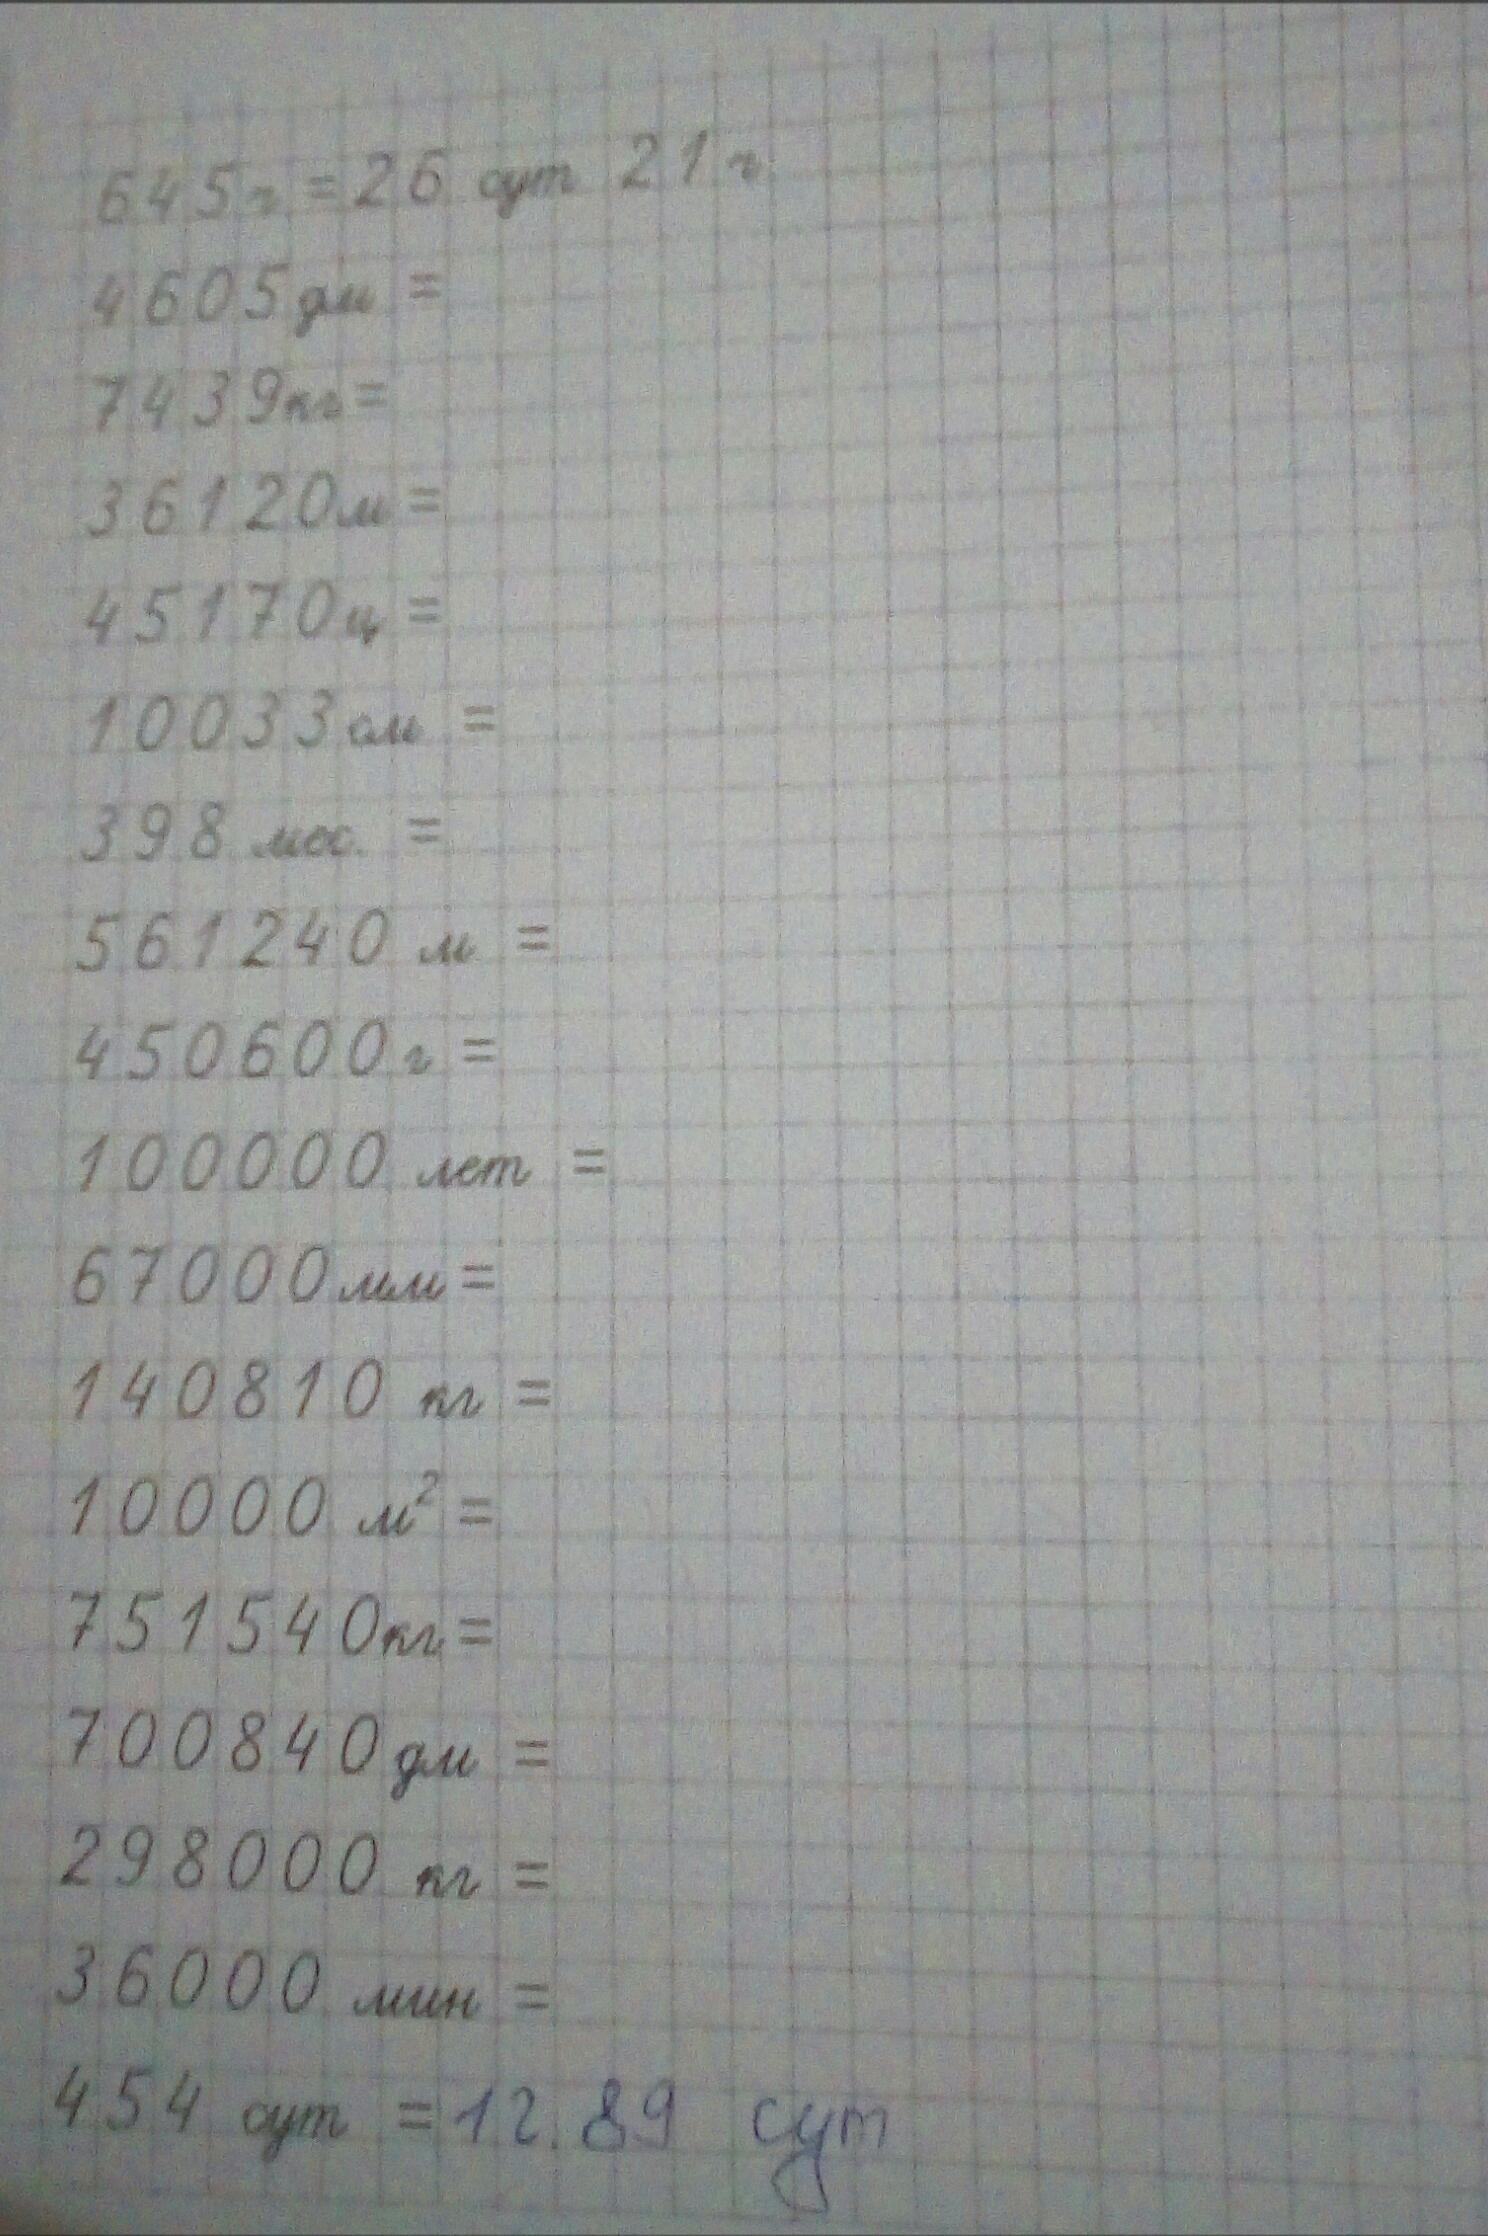 645ч = 26 сут 21 ч.
4605дм =
7439кг=
36120м =
45170ц =
10033см =
398 мес. =
561240 м =
450600г =
100000 лет =
67000мм =
140810 кг =
10000 м² =
751540кг =
700840дм =
298000 кг =
36000 мин =
454 сут = 1г. 89 сут